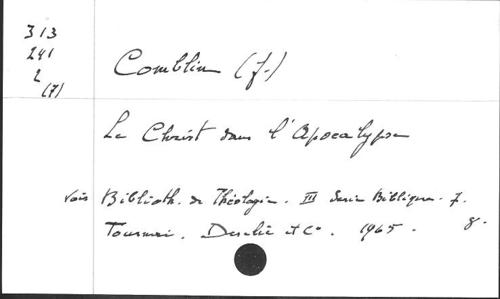 313
241
2
(7)
Comblin (J.)
Le Christ dans l'Apocalypse
Voir Biblioth. de Théologie. III Serie Biblique. 7.
Tournai. Desclée et Co. 1965. 8.